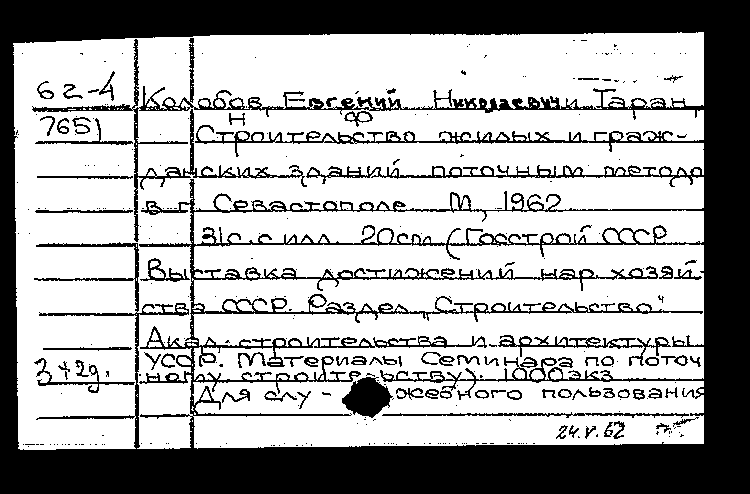 62-4 Колобов, Евгений Николаевич и Таран,
7651 Н Ф
Строительство жилых и граж-
данских зданий поточным методо
в г. Севастополе. М., 1962
31с. с илл. 20см (Госстрой СССР
Выставка достижений нар. хозяй-
ства СССР. Раздел „Строительство".
Акад. строительства и архитектуры
УССР. Материалы Семинара по поточ
ному строительству). 1000экз
Для слу- жебного пользования
24.V.62